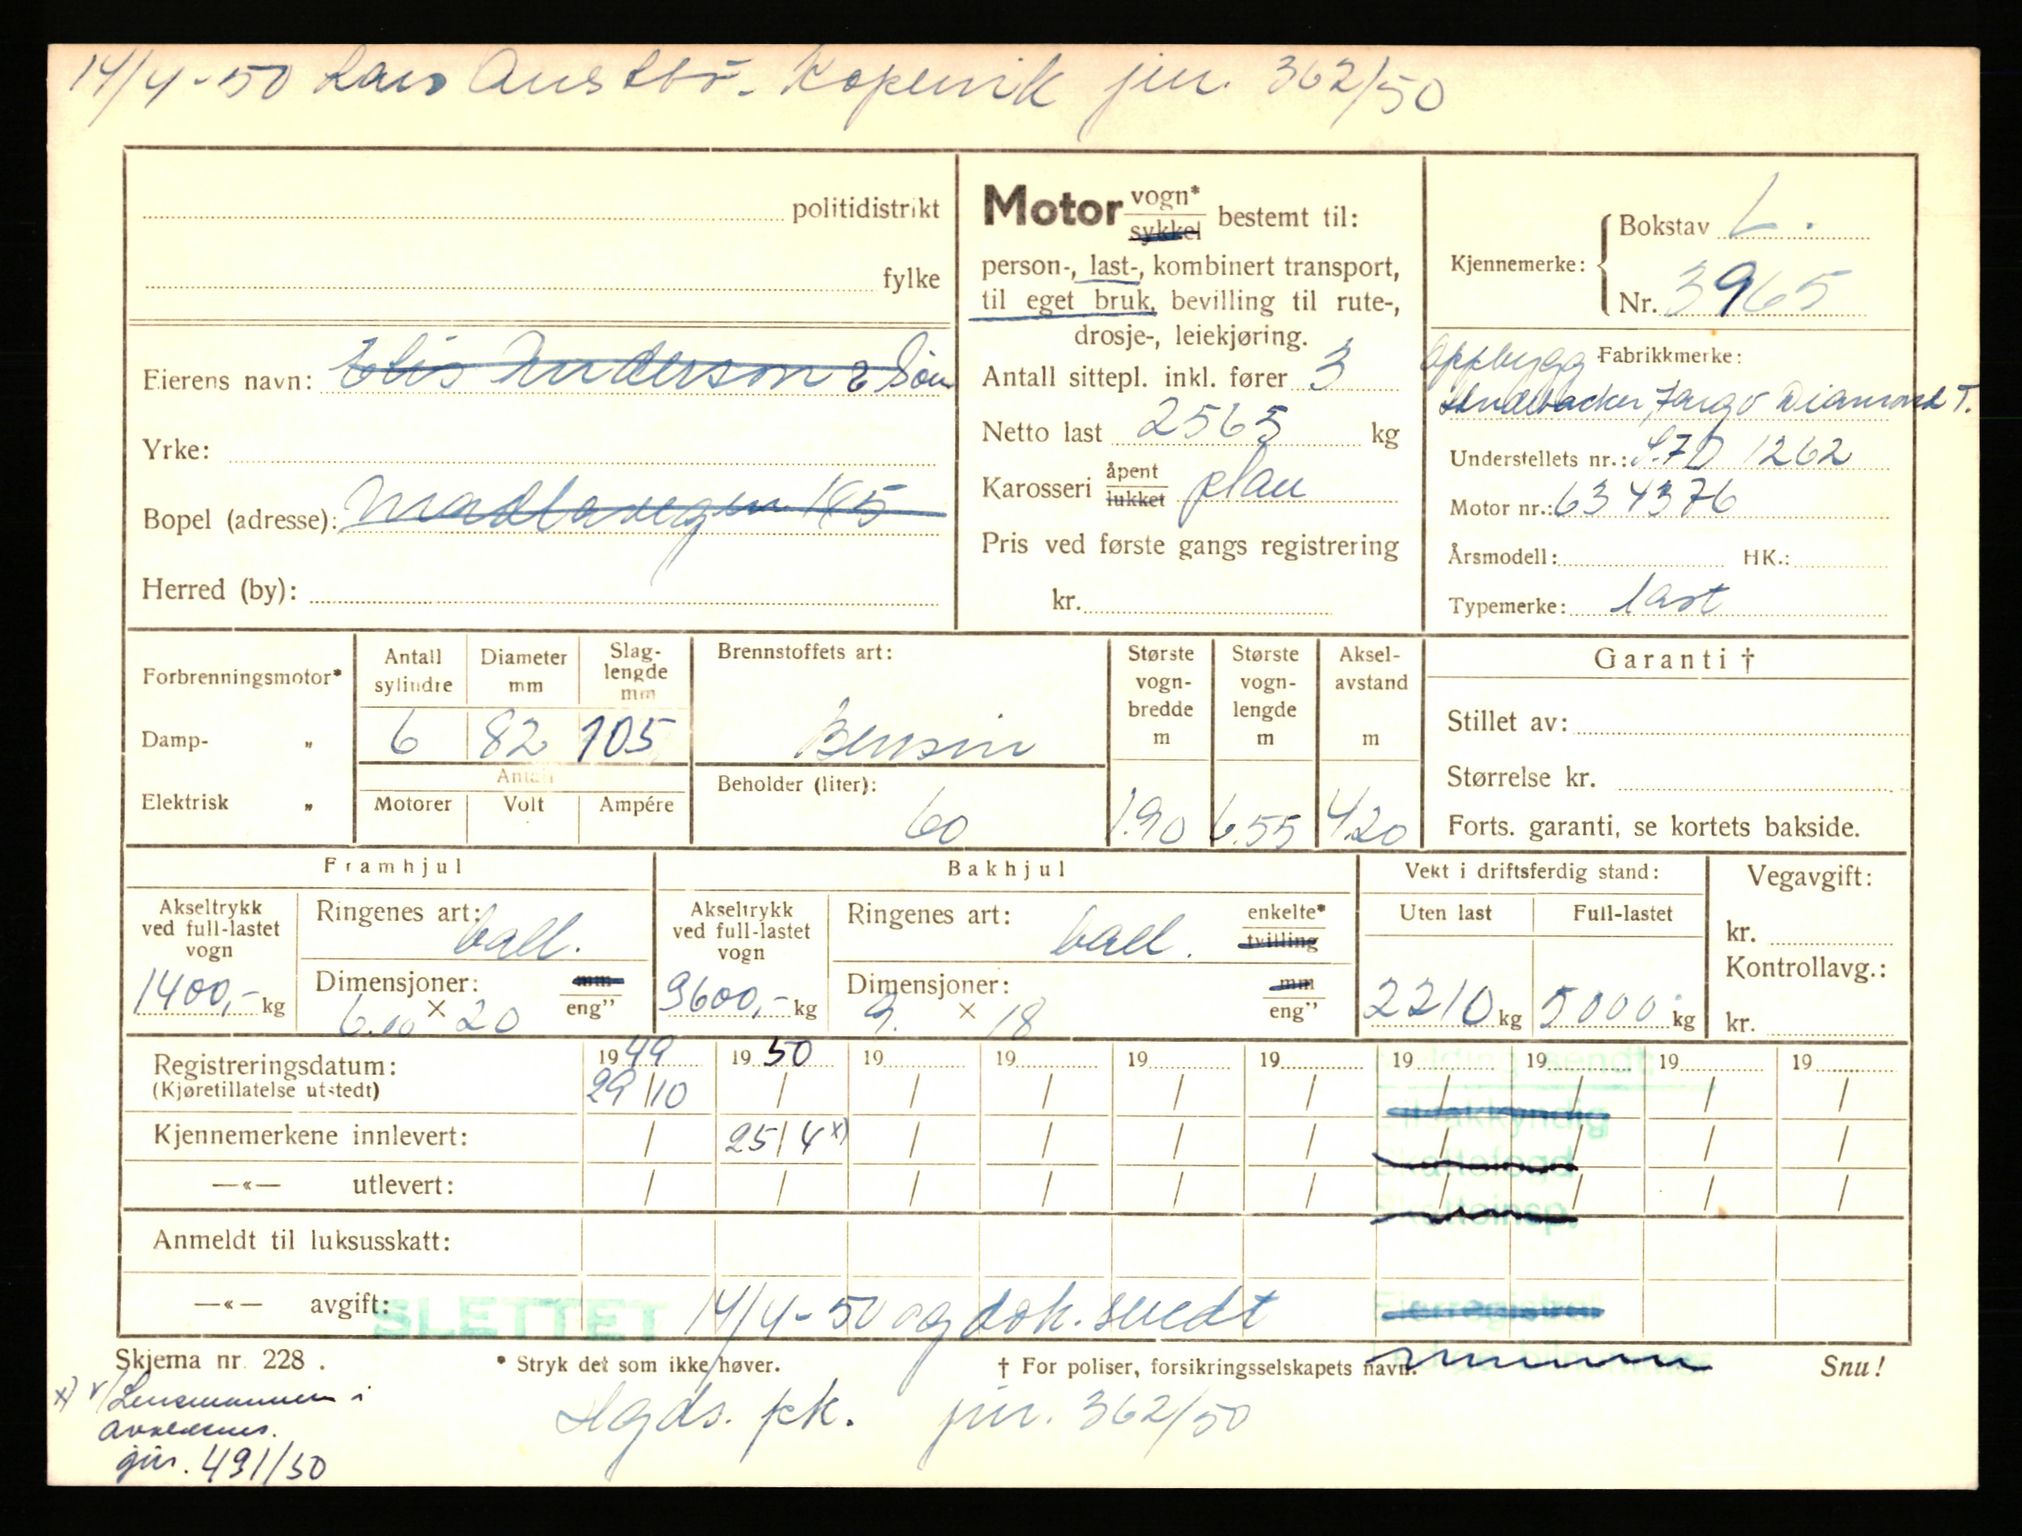 14/4-50 Lars Austbö - Kopervik jnr. 362/50
politidistrikt
fylke
Eierens navn: Elis Anderson & Sön
Yrke:
Bopel (adresse): Madlavegen 185
Herred (by):
Motor vogn* sykkel bestemt til:
person-, last-, kombinert transport,
til eget bruk, bevilling til rute-,
drosje-, leiekjøring.
Antall sittepl. inkl. fører 3
Netto last 2565 kg
Karosseri åpent lukket plan
Pris ved første gangs registrering
kr.
Kjennemerke: Bokstav L.
Nr. 3965
Oppbygg Fabrikkmerke:
Studebacker, Fargo Diamond T.
Understellets nr.: S.7D 1262
Motor nr.: 634376
Årsmodell: HK.:
Typemerke: last
Forbrenningsmotor*
Damp- „
Elektrisk „
Antall sylindre Diameter mm Slag-lengde mm
6 82 105
Antall
Motorer Volt Ampére
Brennstoffets art:
Bensin
Beholder (liter):
60
Største vogn-bredde m
1.90
Største vogn-lengde m
6.55
Aksel-avstand m
4.20
Garanti †
Stillet av:
Størrelse kr.
Forts. garanti, se kortets bakside.
Framhjul
Akseltrykk ved full-lastet vogn
1400,- kg
Ringenes art: ball.
Dimensjoner: mm eng"
6.00 × 20
Bakhjul
Akseltrykk ved full-lastet vogn
3600,- kg
Ringenes art: ball. enkelte* tvilling
Dimensjoner: mm eng"
9. × 18
Vekt i driftsferdig stand:
Uten last Full-lastet
2210 kg 5000 kg
Vegavgift:
kr.
Kontrollavg.:
kr.
Registreringsdatum: 1949 1950 19 19 19 19 19 19 19 19
(Kjøretillatelse utstedt) 29/10 / / / / / / / / /
Kjennemerkene innlevert: / 25/4 x) / / / / / / / /
—«— utlevert: / / / / / / / / / /
Anmeldt til luksusskatt:
—«— avgift:
Melding sendt
til sakkyndig
Skattefogd
Skatteinsp.
Eierregistret
SLETTET 14/4-50 og dok. sendt
Skjema nr. 228. * Stryk det som ikke høver. † For poliser, forsikringsselskapets navn. Snu!
Hgds. pk. jnr. 362/50
x) v/Lensmannen i
Avaldsnes.
jnr. 491/50